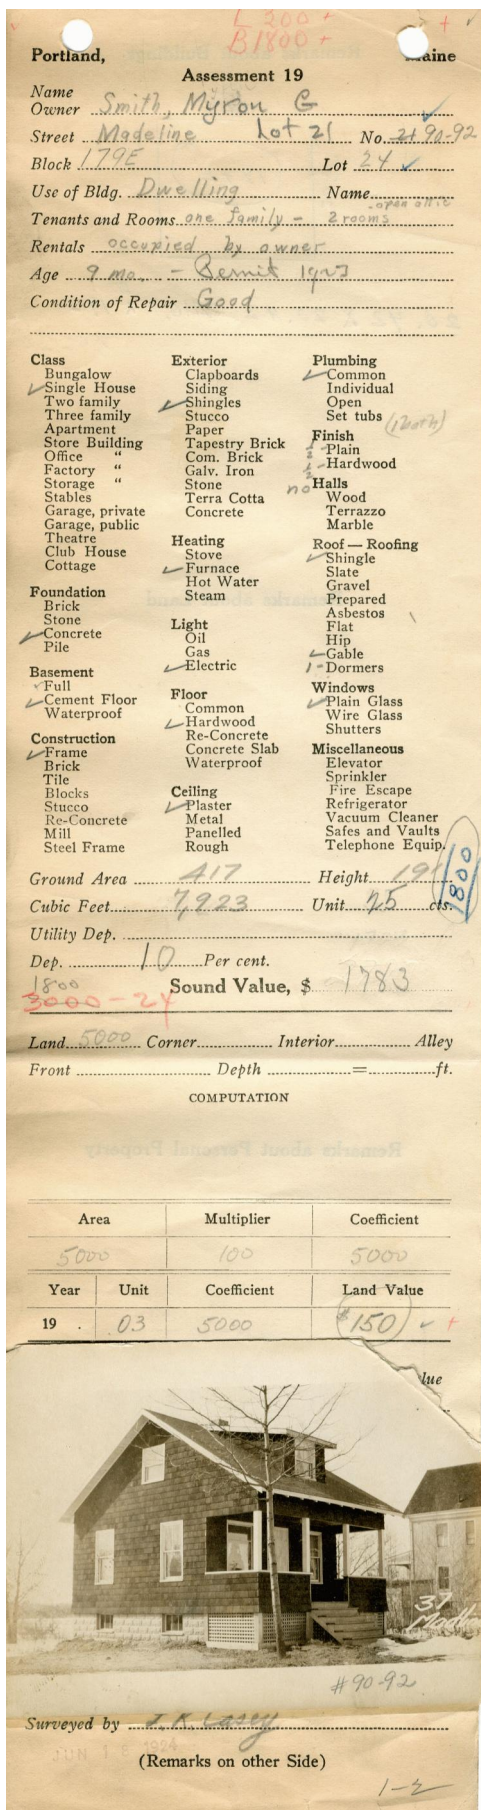 L 200 +
B 1800 +
Portland, Maine
Assessment 19
Name
Owner Smith, Myron G
Street Madeline Lot 21 No. 21 90-92
Block 179E Lot 24
Use of Bldg. Dwelling Name
open attic
Tenants and Rooms one family - 2 rooms
Rentals occupied by owner
Age 9 mo. - Permit 1923
Condition of Repair Good
Class
Bungalow
Single House
Two family
Three family
Apartment
Store Building
Office "
Factory "
Storage "
Stables
Garage, private
Garage, public
Theatre
Club House
Cottage
Foundation
Brick
Stone
Concrete
Pile
Basement
Full
Cement Floor
Waterproof
Construction
Frame
Brick
Tile
Blocks
Stucco
Re-Concrete
Mill
Steel Frame
Exterior
Clapboards
Siding
Shingles
Stucco
Paper
Tapestry Brick
Com. Brick
Galv. Iron
Stone
Terra Cotta
Concrete
Heating
Stove
Furnace
Hot Water
Steam
Light
Oil
Gas
Electric
Floor
Common
Hardwood
Re-Concrete
Concrete Slab
Waterproof
Ceiling
Plaster
Metal
Panelled
Rough
Plumbing
Common
Individual
Open
Set tubs
Finish
Plain
Hardwood
no Halls
Wood
Terrazzo
Marble
Roof — Roofing
Shingle
Slate
Gravel
Prepared
Asbestos
Flat
Hip
Gable
1 - Dormers
Windows
Plain Glass
Wire Glass
Shutters
Miscellaneous
Elevator
Sprinkler
Fire Escape
Refrigerator
Vacuum Cleaner
Safes and Vaults
Telephone Equip.
1800
Ground Area 417 Height 19
Cubic Feet 7,923 Unit 25 cts.
Utility Dep.
Dep. 10 Per cent.
1800
Sound Value, $ 1783
3000-24
Land 5000 Corner Interior Alley
Front Depth = ft.
COMPUTATION
Remarks about Personal Property
Area Multiplier Coefficient
5000 100 5000
Year Unit Coefficient Land Value
19 . .03 5000 $150
lue
37
#90-92
Surveyed by J. K. Casey
JUN 1 1924
(Remarks on other Side)
1-2